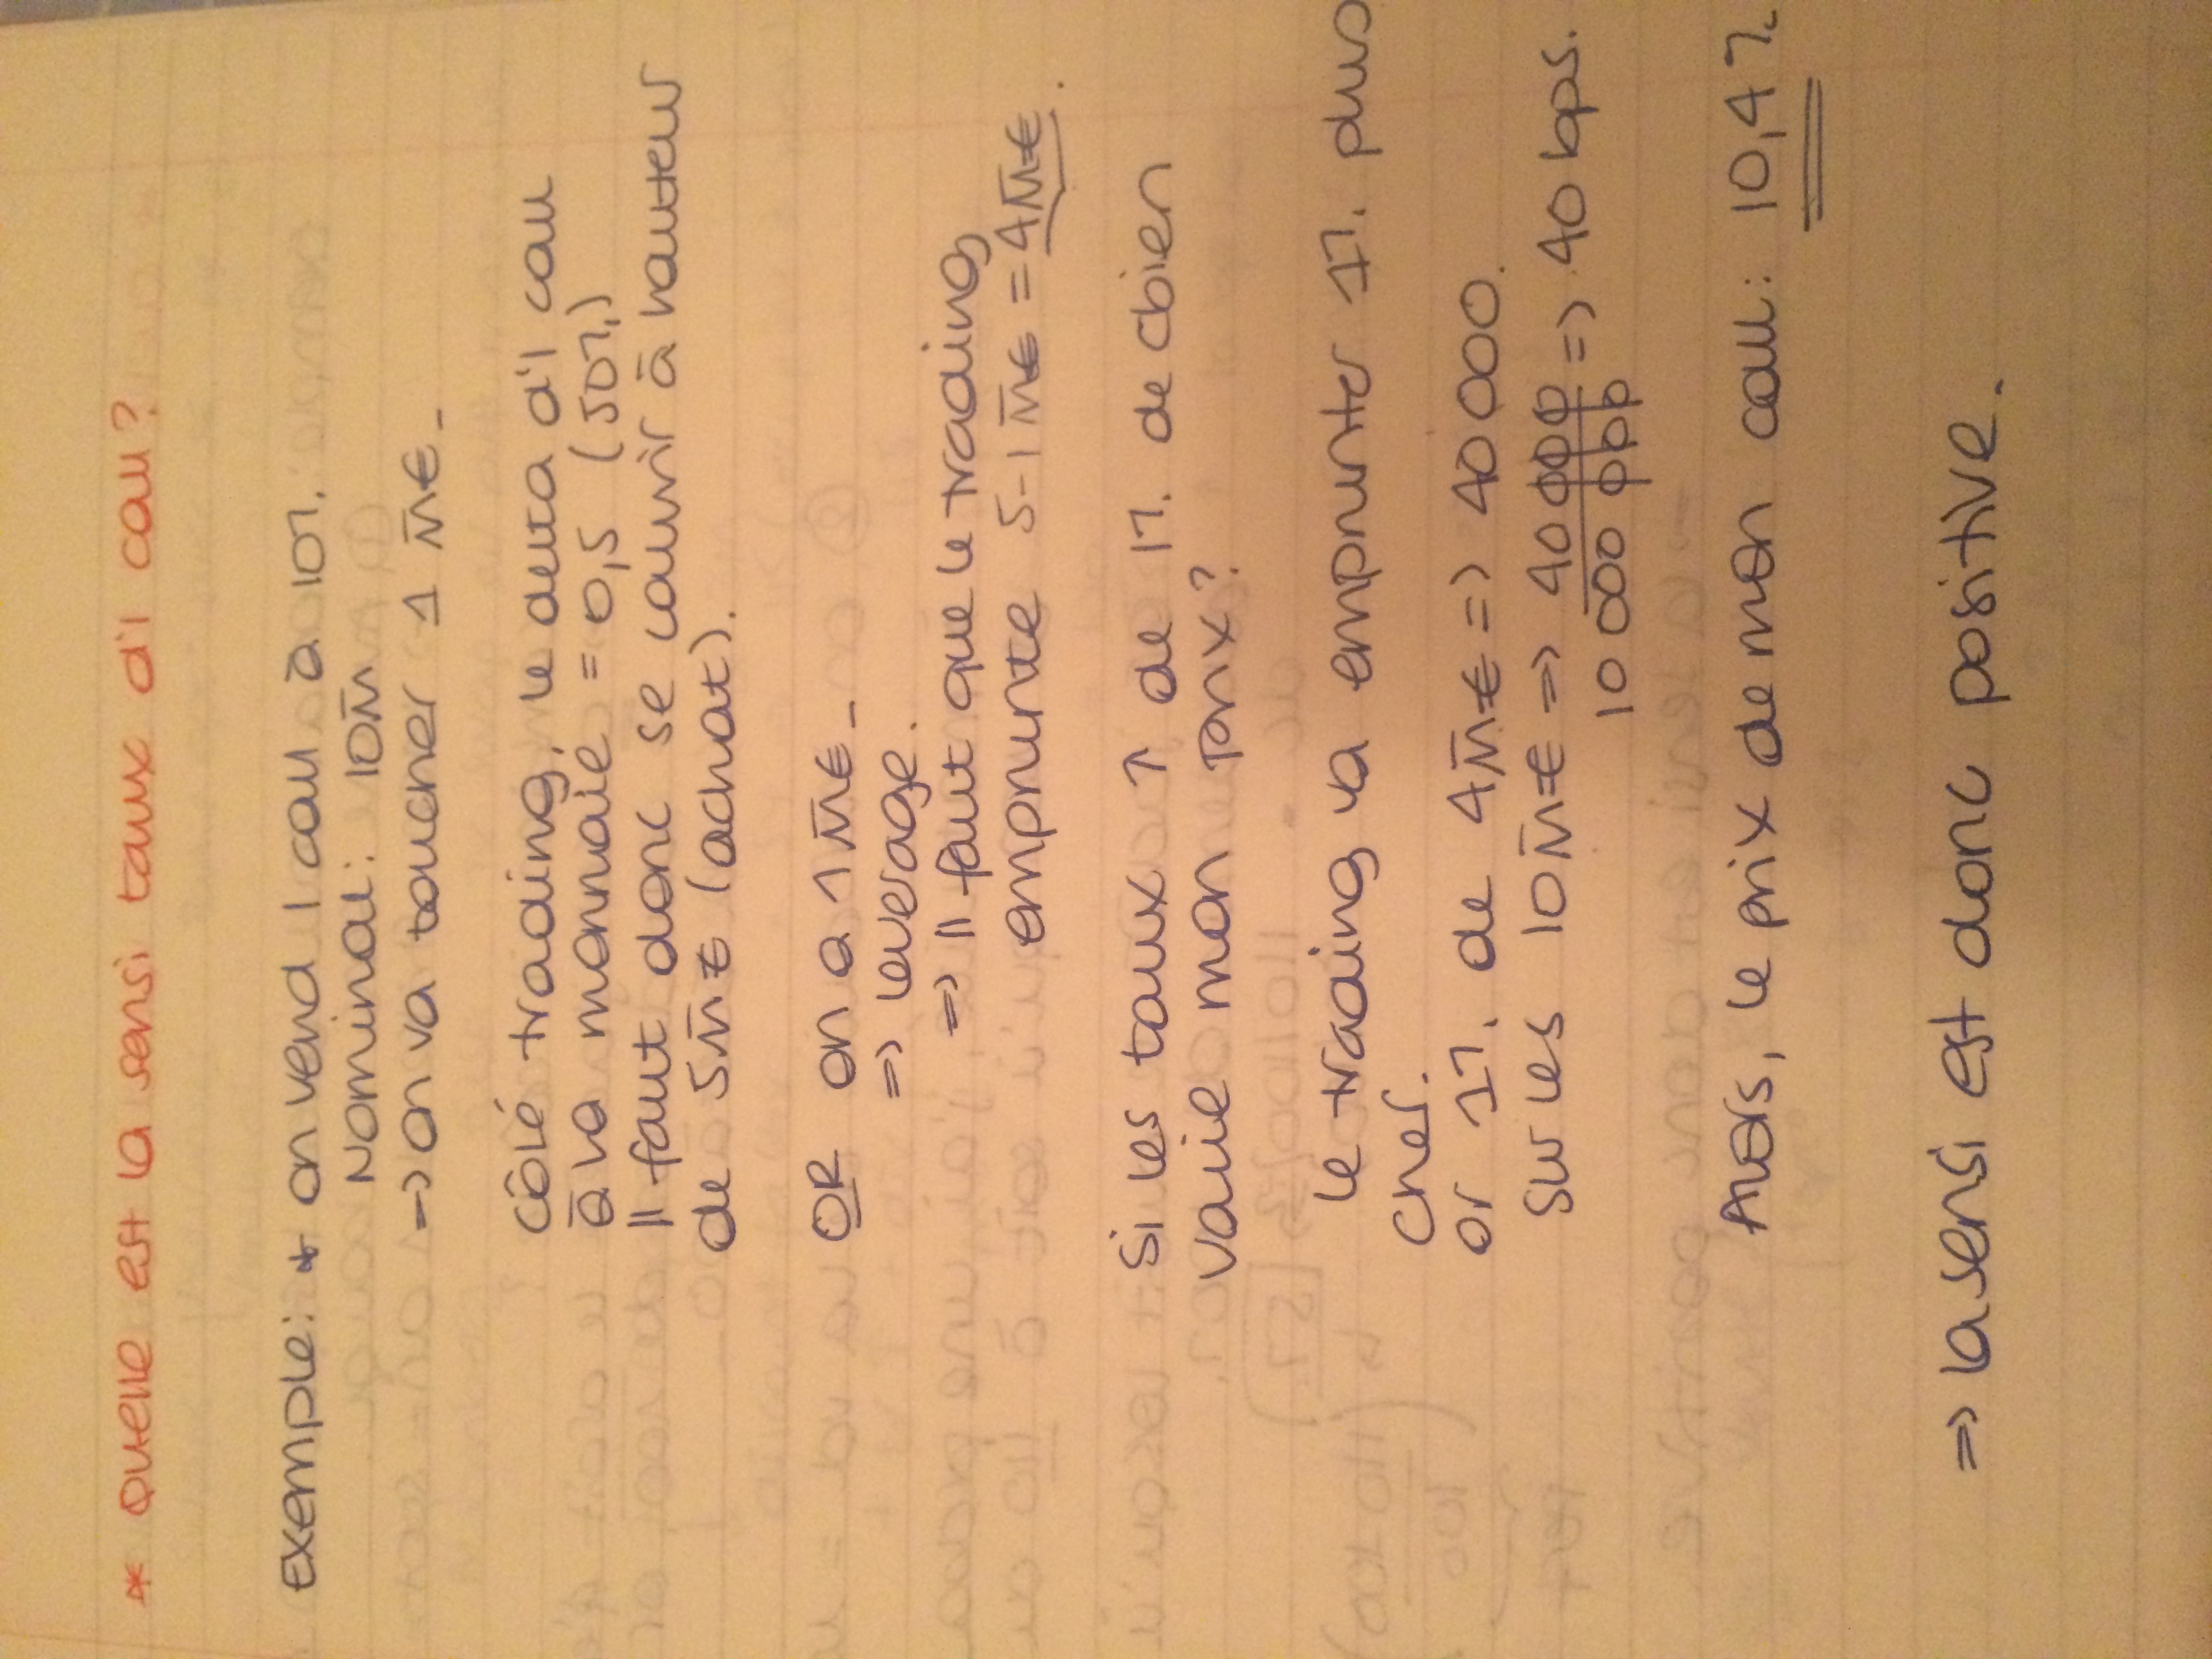 * Quelle est la sensi taux d'1 call?
Exemple: * on vend 1 call à 10%.
Nominal: 10M̄
=> on va toucher 1 M̄€_
Côté trading, le delta d'1 call
à la monnaie = 0,5 (50%)
Il faut donc se couvrir à hauteur
de 5M̄€ (achat).
OR on a 1M̄€_
=> leverage.
=> Il faut que le trading
emprunte 5-1M̄€ = 4M̄€.
Si les taux ↑ de 1%. de cbien
varie mon prix?
Le trading va emprunter 1%. plus
cher.
or 1%. de 4M̄€ => 40 000.
sur les 10M̄€ => 40 000 / 10 000 000 => 40 bps.
Alors, le prix de mon call: 10,4%
=> la sensi est donc positive_